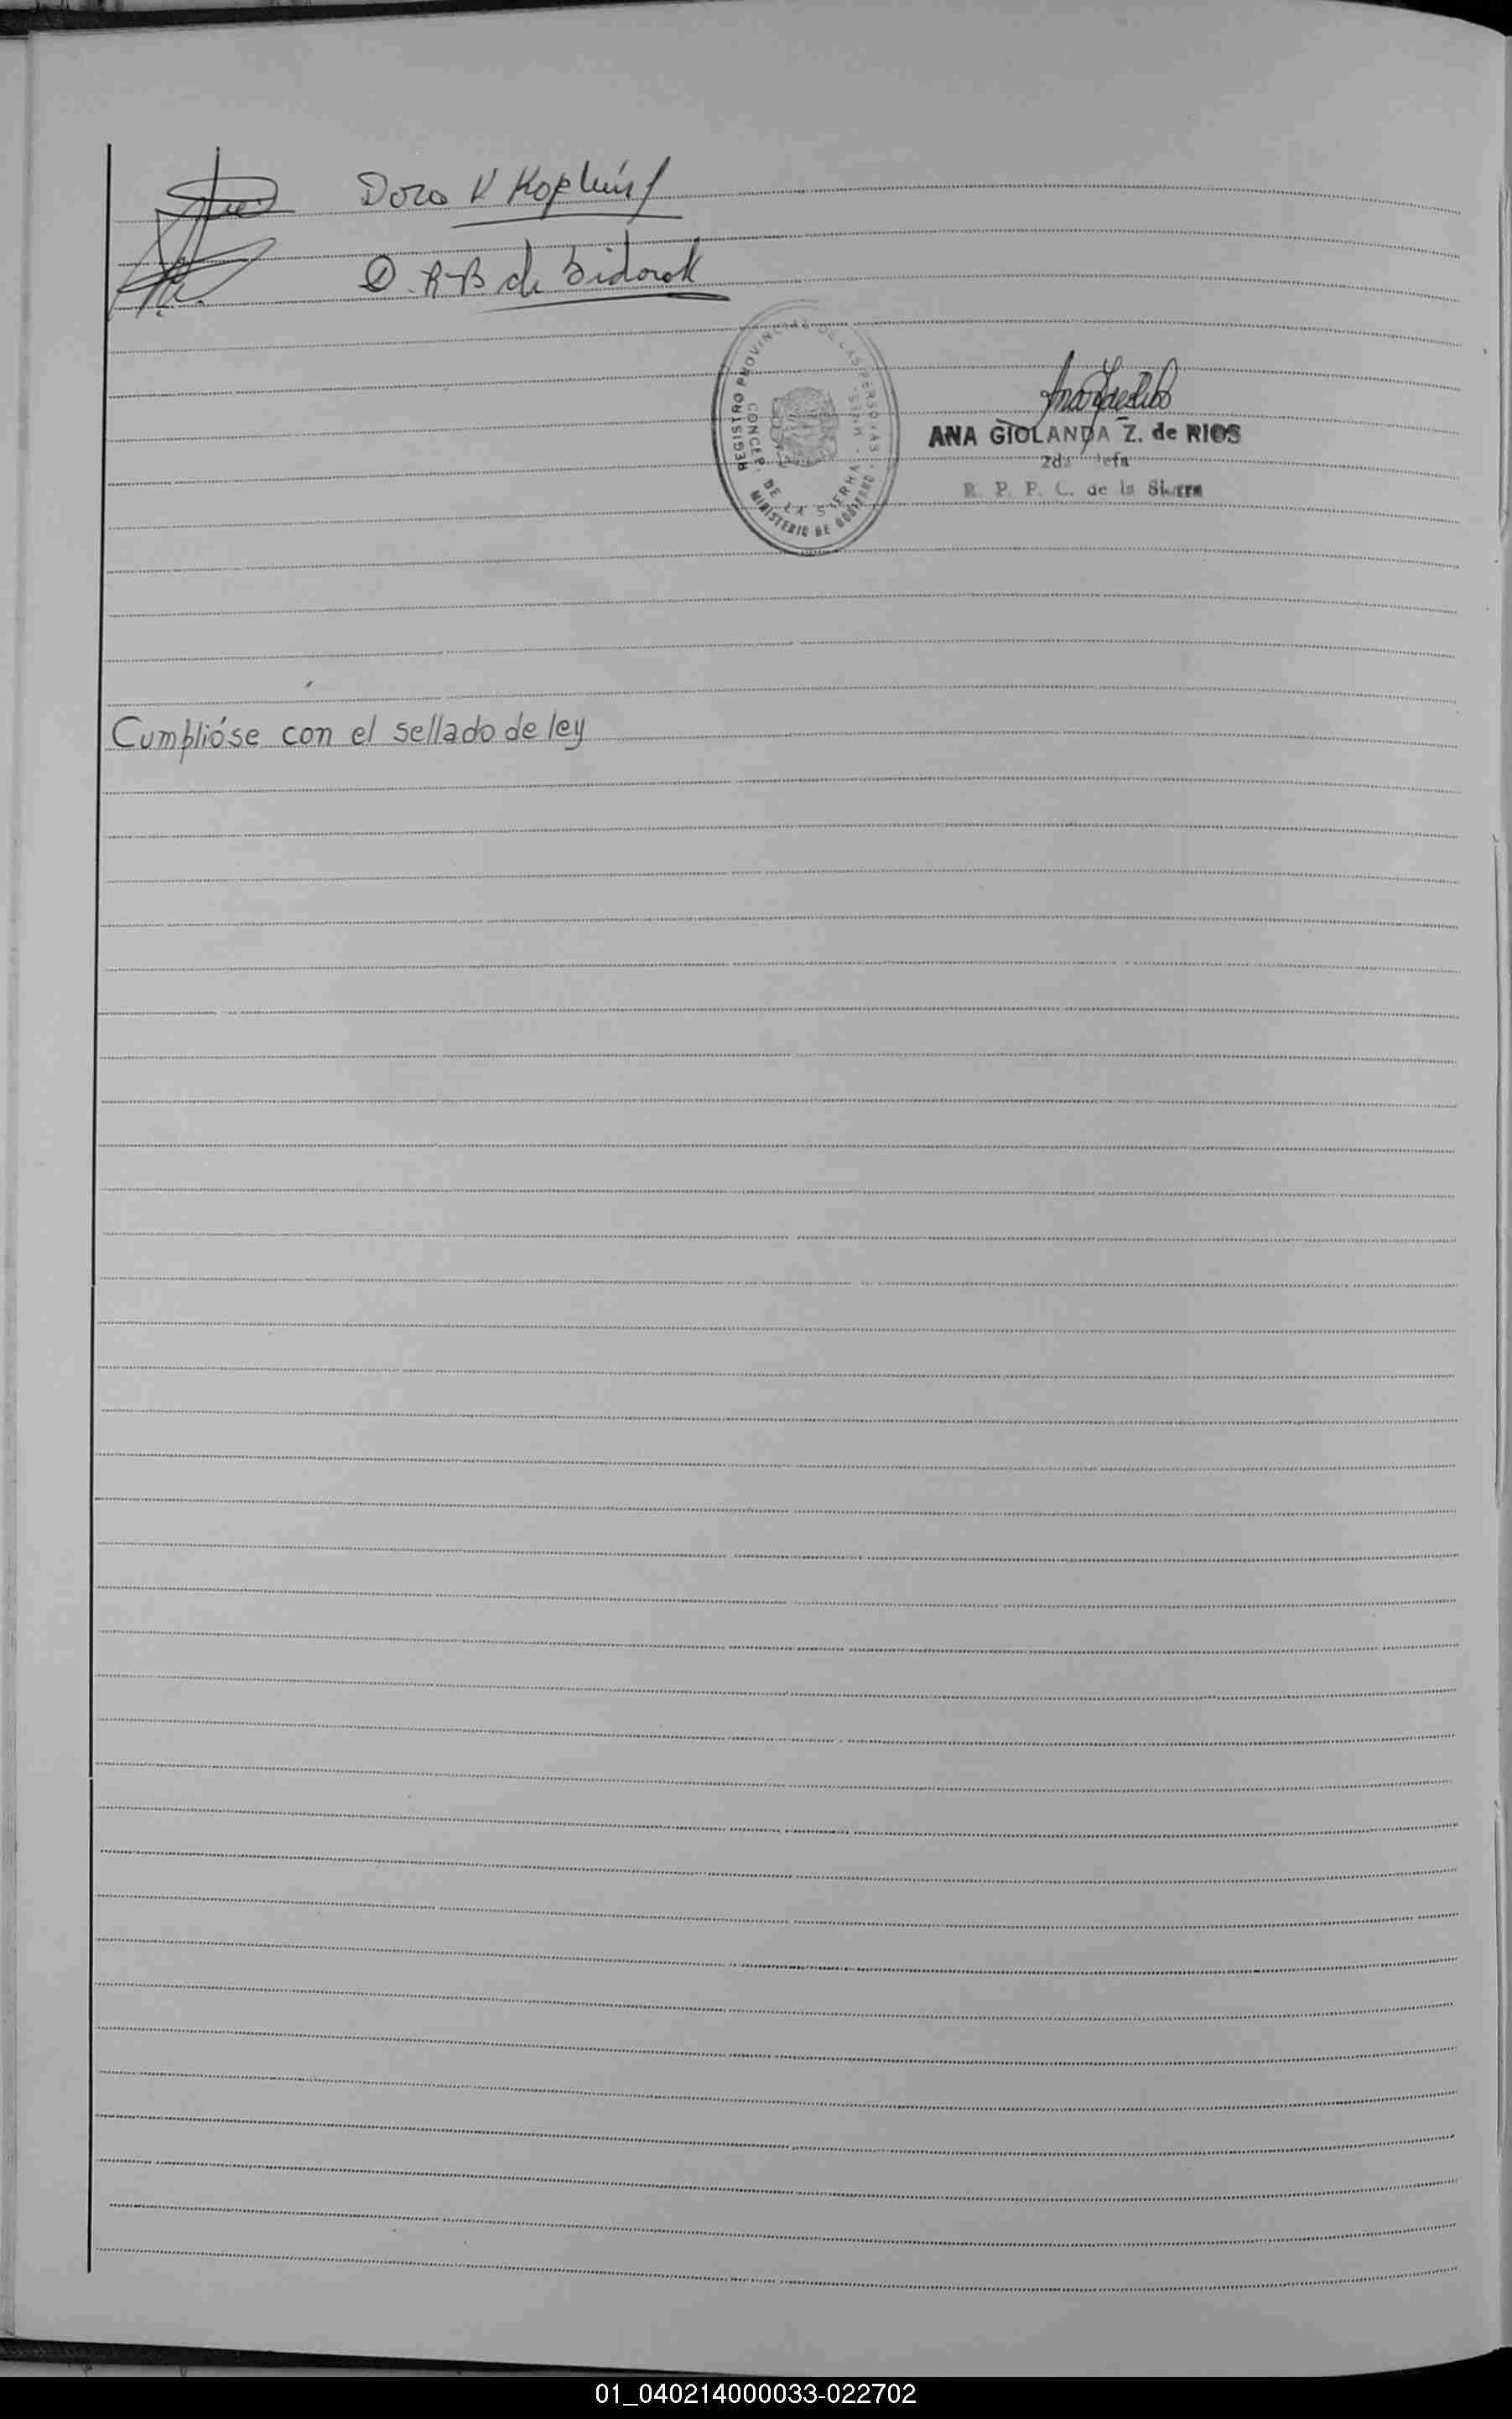 Dora K Kopluis
R-B de Bidondo
REGISTRO PROVINCIAL DE LAS PERSONAS
CONCEP. DE LA SIERRA
MINISTERIO DE GOBIERNO
ANA GIOLANDA Z. de RIOS
2da Jefa
R. P. P. C. de la Sierra
Cumplióse con el sellado de ley
01_040214000033-022702